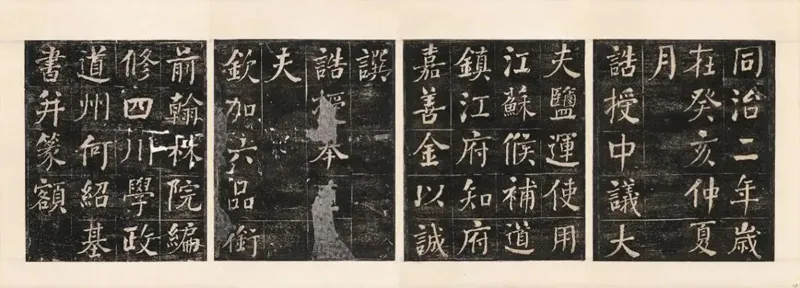 同治二年歲
在癸亥仲夏
月
誥授中議大
夫鹽運使用
江蘇候補道
鎮江府知府
嘉善金以誠
譔
誥授奉
夫
欽加六品銜
前翰林院編
修四川學政
道州何紹基
書并篆額